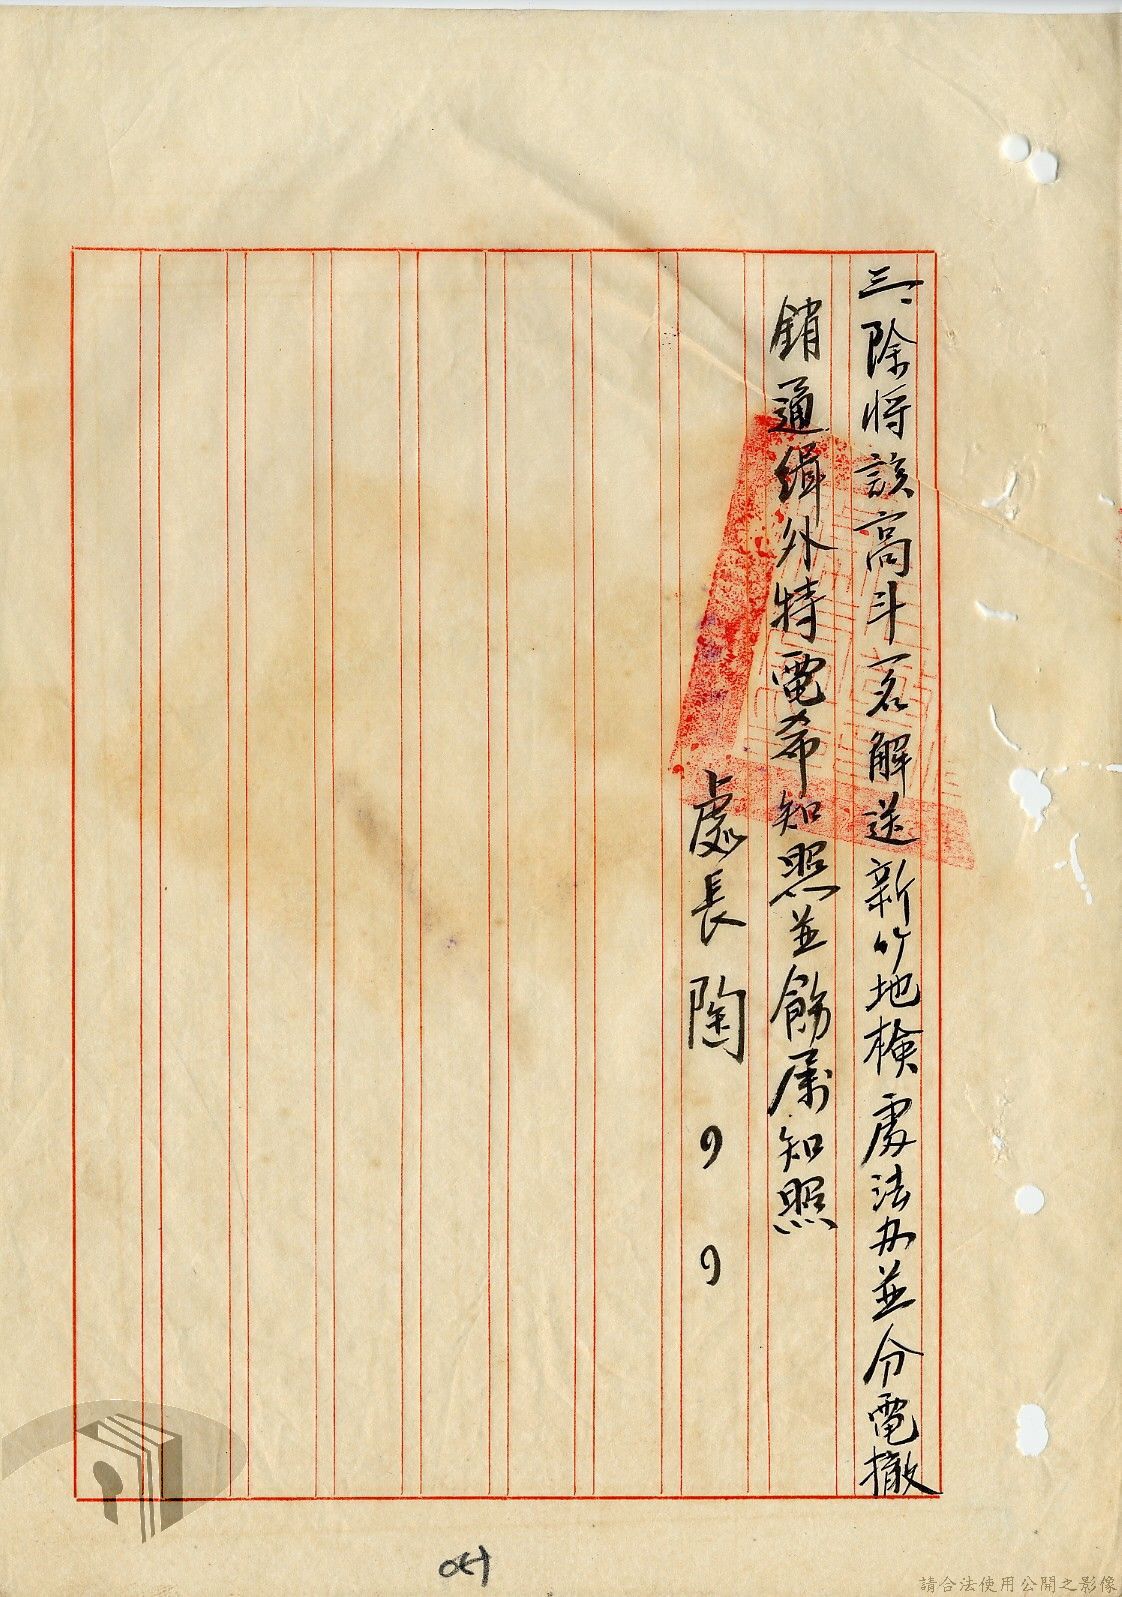 三、除將該高斗一名解送新竹地檢處法办並分電撤
銷通緝外特電希知照並飭属知照
處長陶
請合法使用公開之影像